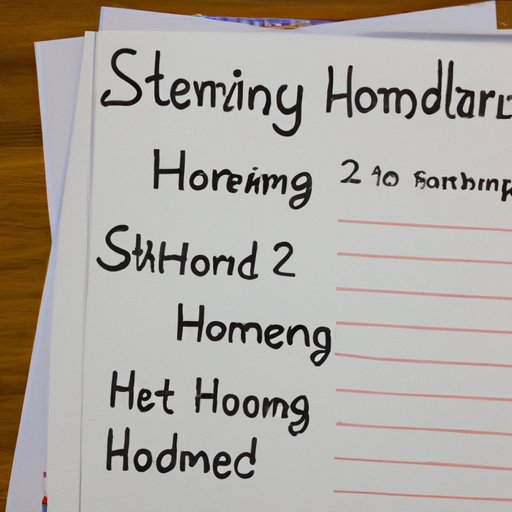 Sterniny Homdlar
Horeimg 2 40
SthHornd 2
Homeng
Het Hoomg
Hodmed